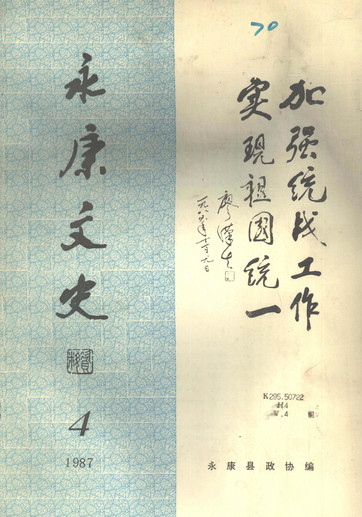 70
永康文史
4
1987
加强统战工作
实现祖国统一
廖漢生
K295.50722
V.4
永康县政协编